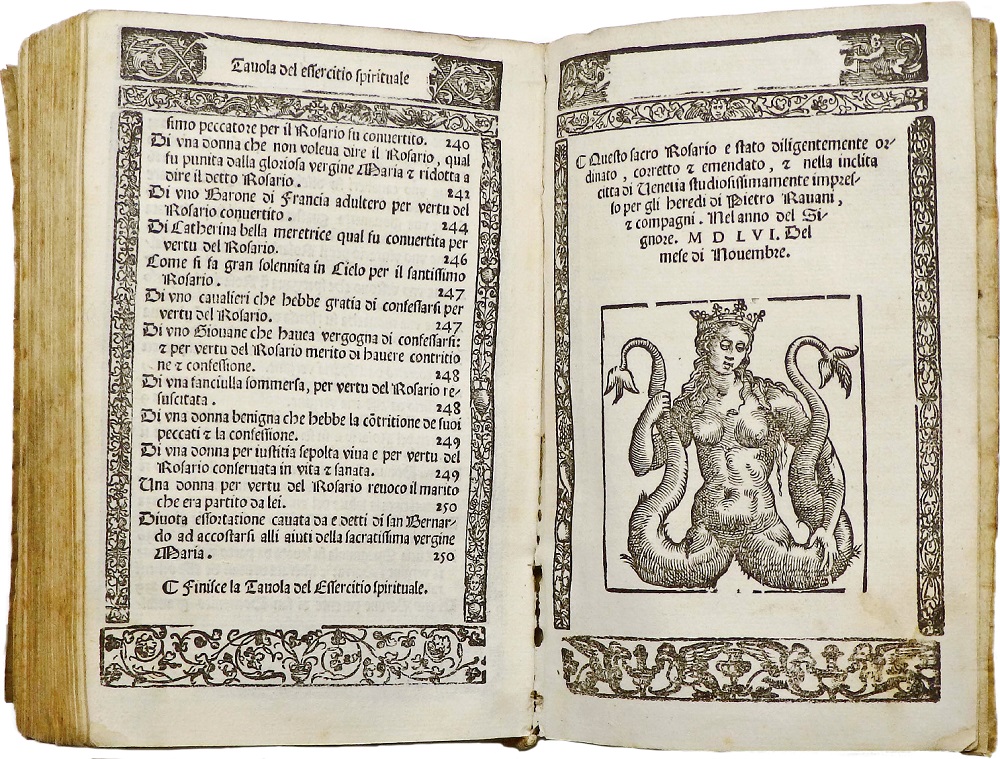 Tauola del essercitio spirituale
simo peccatore per il Rosario fu conuertito. 240
Di vna donna che non voleua dire il Rosario, qual
fu punita dalla gloriosa vergine Maria ⁊ ridotta a
dire il detto Rosario. 242
Di vno Barone di Francia adultero per vertu del
Rosario conuertito. 244
Di Catherina bella meretrice qual fu conuertita per
vertu del Rosario. 246
Come si fa gran solennita in Cielo per il santissimo
Rosario. 247
Di vno caualieri che hebbe gratia di confessarsi per
vertu del Rosario. 247
Di vno Giouane che hauea vergogna di confessarsi:
⁊ per vertu del Rosario merito di hauere contritio
ne ⁊ confessione. 248
Di vna fanciulla sommersa, per vertu del Rosario re-
suscitata. 248
Di vna donna benigna che hebbe la cõtritione de suoi
peccati ⁊ la confessione. 249
Di vna donna per iustitia sepolta viua e per vertu del
Rosario conseruata in vita ⁊ sanata. 249
Una donna per vertu del Rosario reuoco il marito
che era partito da lei. 250
Diuota essortatione cauata da e detti di san Bernar-
do ad accostarsi alli aiuti della sacratissima vergine
Maria. 250
C Finisce la Tauola del Essercitio spirituale.
C Questo sacro Rosario e stato diligentemente or-
dinato, corretto ⁊ emendato, ⁊ nella inclita
citta di Uenetia studiosissimamente impres-
so per gli heredi di Pietro Rauani,
⁊ compagni. Nel anno del Si-
gnore. M D L VI. Del
mese di Nouembre.